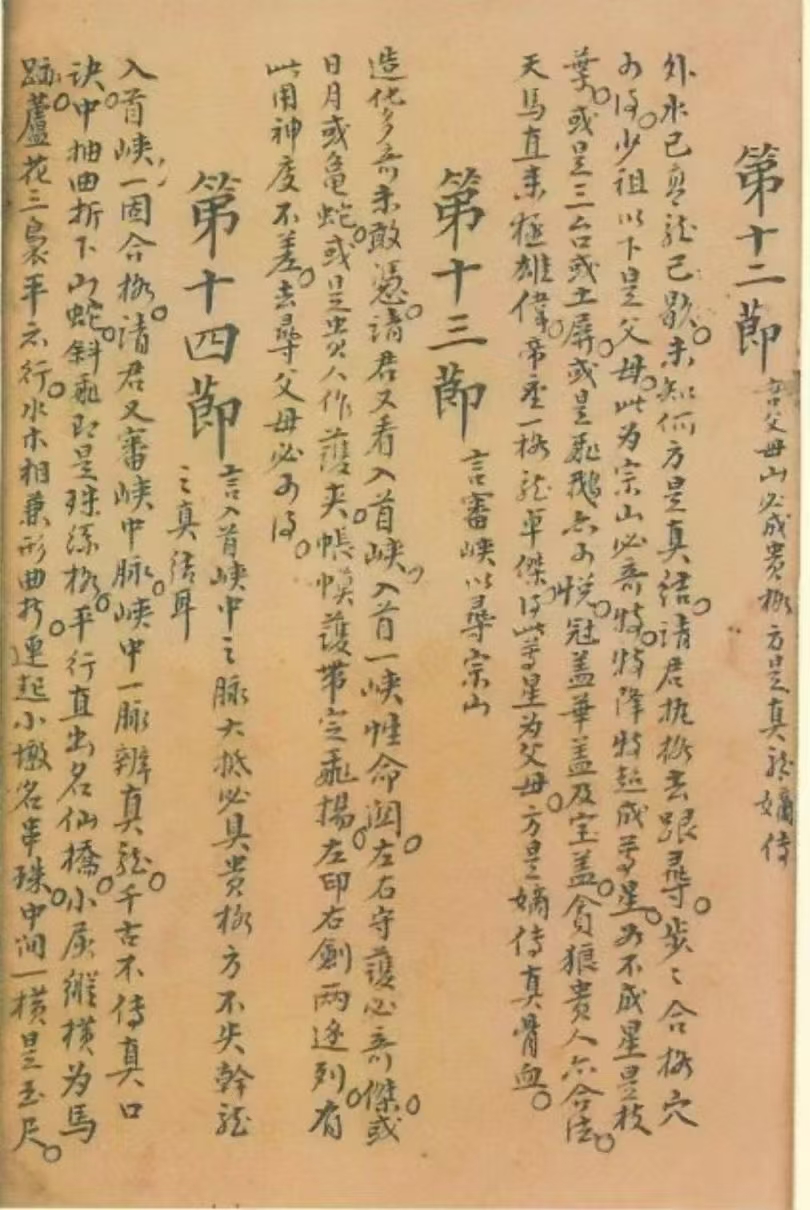 第十二節 言父母山必成貴格方是真龍嫡傳
外水已亮龍已歇未知何方是真結請君抗格去跟尋步々合格穴
方得少祖以下是父母此为宗山必奇特特降特起成尊星如不成星是枝
葉或是三台或土屏或是飛鵝亦可悦冠盖華盖及宝盖貪狼貴人亦合法
天馬直来極雄偉帝座一格龍卓傑得此尊星为父母方是嫡傳真骨血
第十三節 言審峡以尋宗山
造化多奇未敢憑請君又看入首峡入首一峡性命関左右守護必奇傑或
日月或龜蛇或是貴人作護夾帳幙護帯定飛揚左印右劍两邊列有
此用神度不差去尋父母必可得
第十四節 言入首峡中之脉大抵必具貴格方不失幹龍
之真結耳
入首峡一固合格請君又審峡中脉峡中一脉辨真龍千古不傳真口
訣中抽曲折下山蛇斜飛即是珠絲格平行直出名仙橋小灰縱横为馬
跡蘆花三裊平示行水木相兼形曲折連起小墩名串珠中间一横是玉尺